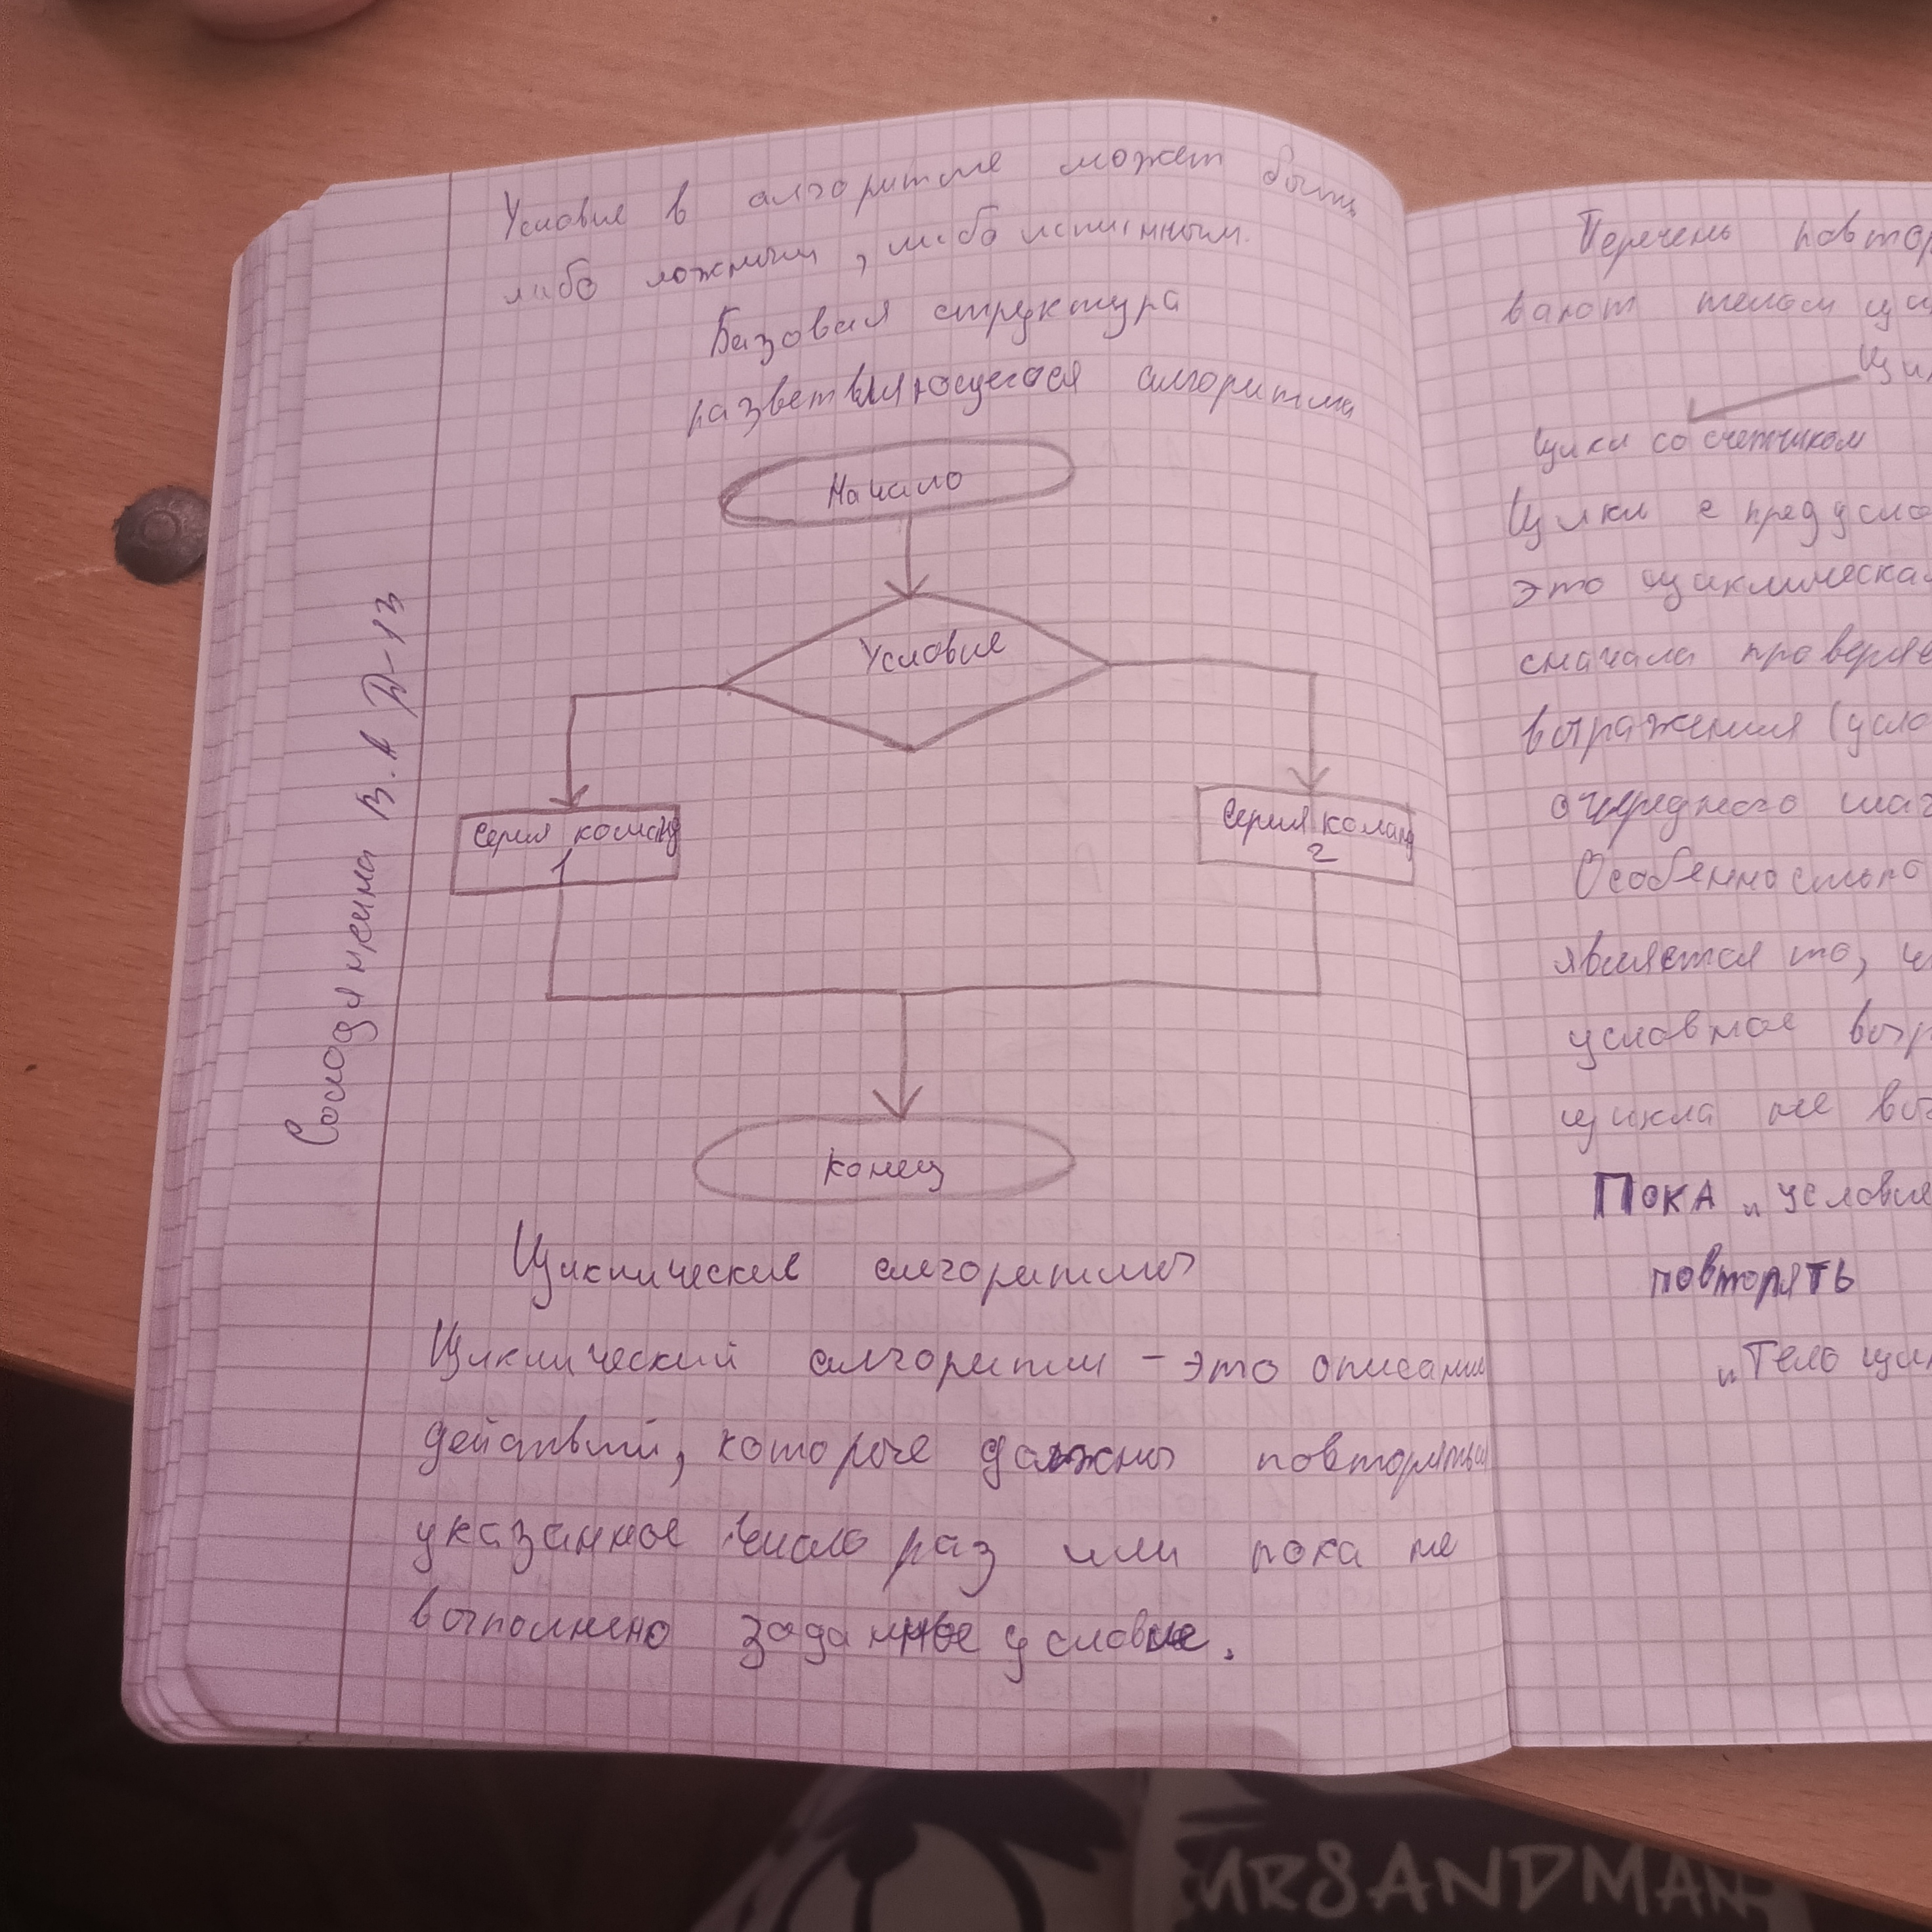 Условие в алгоритме может быть
либо ложным, либо истинным.
Базовая структура
разветвляющегося алгоритма
Начало
Условие
Серия команд
1
Серия команд
2
Конец
Циклические алгоритмы
Циклический алгоритм - это описание
действий, которые должны повторяться
указанное число раз или пока не
выполнено заданное условие.
В.А Д-13
Перечень повтор
вают телом ци
Цик
Цикл со счетчиком
Цикл с предусло
это циклическая
сначала проверяе
выражения (усло
очередного шаг
Особенностью
является то, ч
условное выр
цикла не вы
ПОКА "условие
повторять
"Тело цик
MRSANDMAN